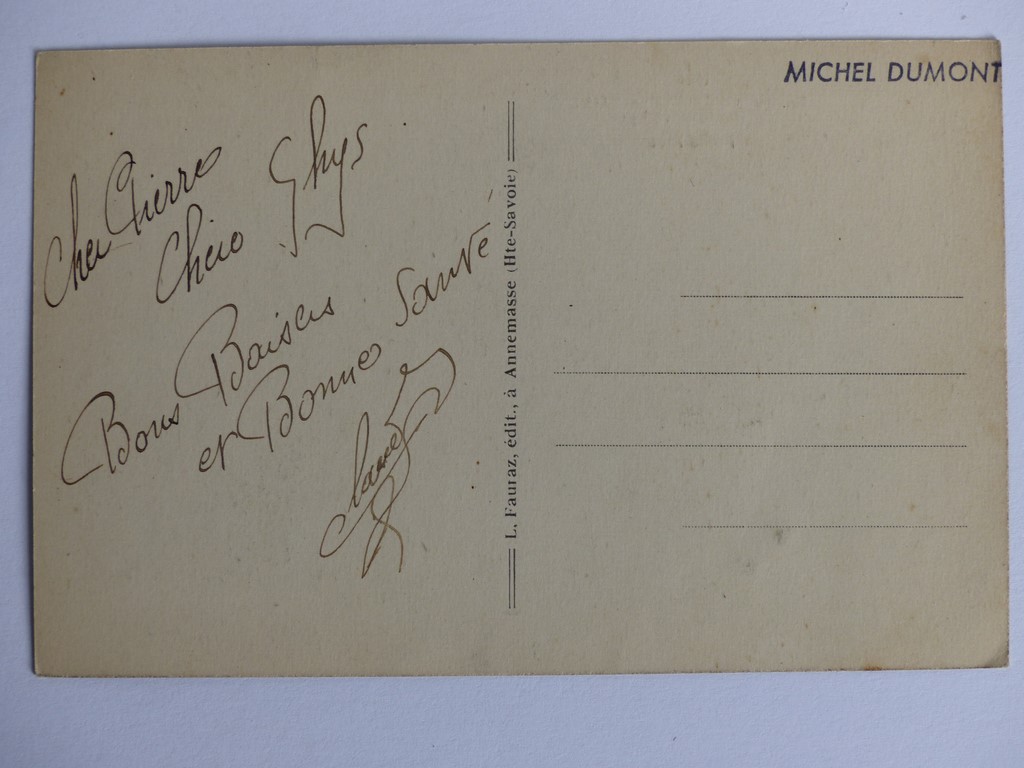 MICHEL DUMONT
Cher Pierre
Chère Ghys
Bons Baisers
et Bonne Santé
L. Fauraz, édit., à Annemasse (Hte-Savoie)